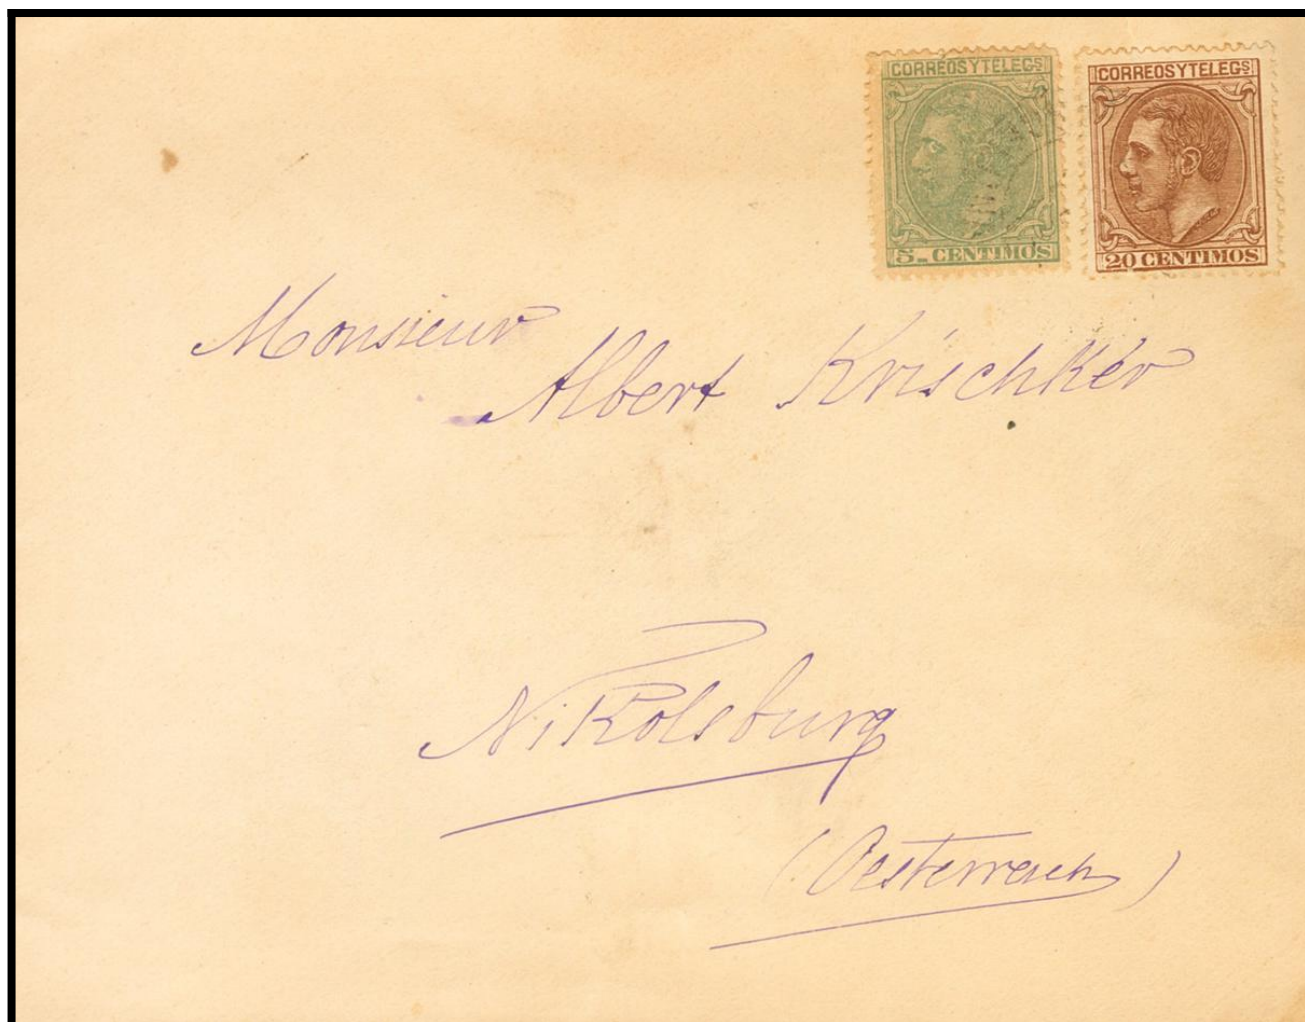 CORREOS Y TELEGS
CORREOS Y TELEGS
5 CENTIMOS
20 CENTIMOS
Monsieur
Albert Krischker
Nikolsburg
(Oesterreich)